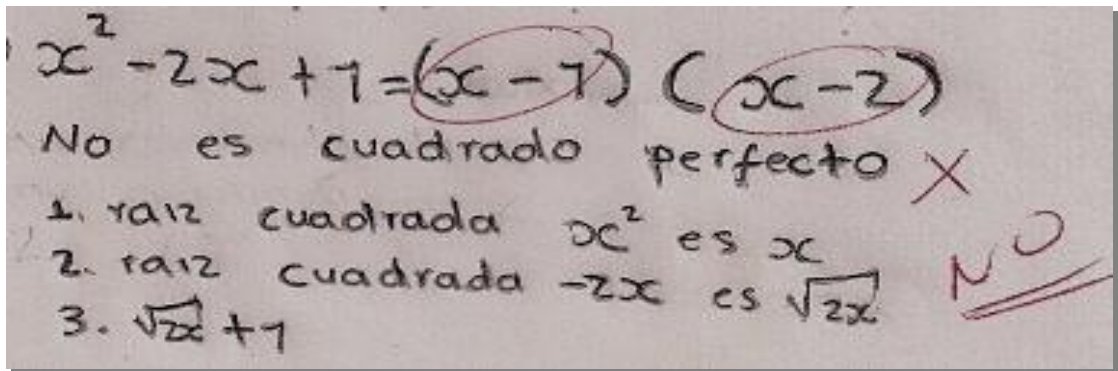 x² - 2x + 1 = (x - 1) (x - 2)
No es cuadrado perfecto X
1. raiz cuadrada x² es x
2. raiz cuadrada -2x es √2x
NO
3. √2x + 1